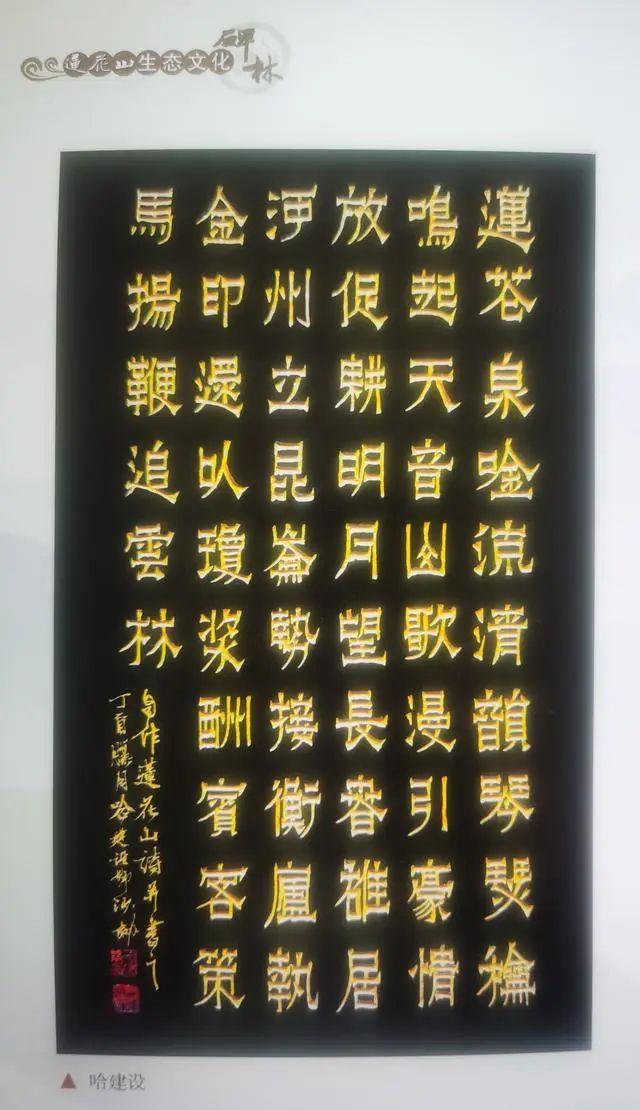 蓮花山生态文化
碑林
蓮花泉唫流清韻琴瑟檎
鳴起天音山歌漫引豪情
放促耕明月望長春雄居
河州立昆崙勢接衡廬執
金印還以瓊漿酬賓客策
馬揚鞭追雲林
自作蓮花山詩并書之
丁酉臘月哈建設
▲ 哈建设